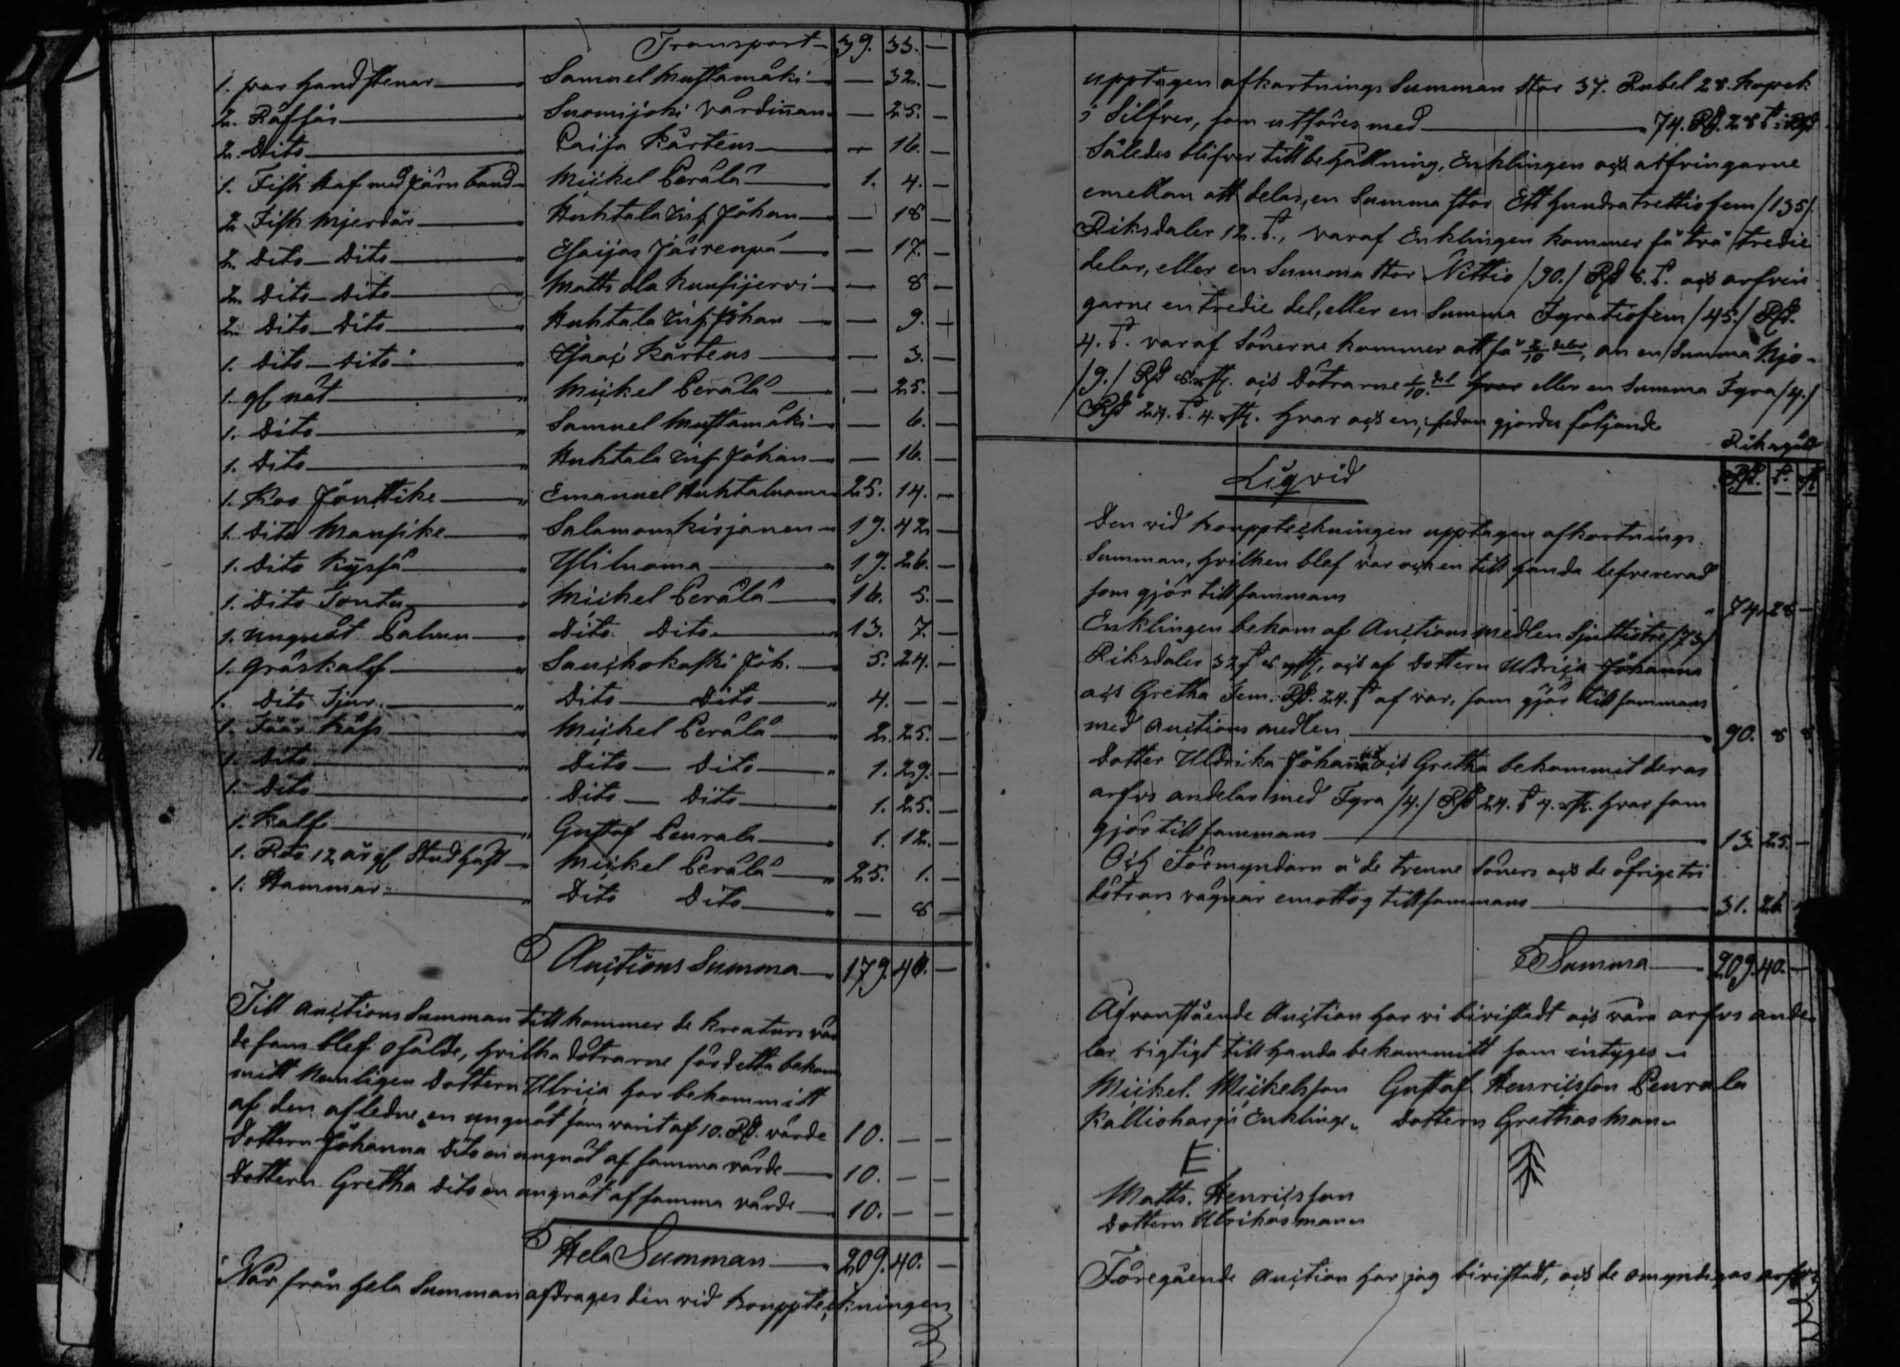 Transport 39. 33. —
1. par handstenar — Samuel Mustamäki — — 32. —
2. Räffsår — Suomijoki värdinnan — 25. —
2. Dito — Caisa Kärtens — — 16. —
1. Fisk kaf med Järn band — Mickel Perälä — 1. 4. —
2. Fisk mjerdar — Huhtala Inh. Johan — — 18 —
2. Dito — Dito — Esaijas Järrenpä — — 17. —
2. Dito — Dito — Matts ola Kuusijervi — — 8 —
2. Dito — Dito — Huhtala Inh. Johan — — 9. —
1. Dito — Dito — Isaac Kärtens — — 3. —
1. gl nät — Mickel Perälä — — 25. —
1. Dito — Samuel Mustamäki — — 6. —
1. Dito — Huhtala Inh. Johan — — 16. —
1. Koo Jönttike — Emanuel Huhtaluoma 25. 14. —
1. Dito Mansike — Salamon Kirjanen — 19. 42 —
1. Dito Kyssä — Yliluoma — 19. 26. —
1. Dito Tontu — Mickel Perälä — 16. 5. —
1. ungnöt Palmen — Dito Dito — 13. 7. —
1. Gräskalf — Sanchokoski Joh. — 5. 24. —
1. Dito Tjur — Dito — Dito — 4. — —
1. Får Käss — Mickel Perälä — 2. 25. —
1. Dito — Dito — Dito — 1. 29. —
1. Dito — Dito — Dito — 1. 25. —
1. Kalf — Gustaf Penrala — 1. 12. —
1. Röd 12 år gl Stod häst — Mickel Perälä — 25. 1. —
1. Hammar — Dito Dito — — 8 —
Auctions Summa — 179. 40. —
Till Auctions Summan tillkommer de kreaturs vär
de som blef osålde, hvilka döttrarne för detta bekom
mitt nemligen Dottern Ulrica har bekommitt
af den afledne en ungnöt som varit af 10. Rd. värde 10. — —
Dottern Johanna Dito en ungnöt af samma värde — 10. — —
Dottern Gretha Dito en ungnöt af samma värde — 10. — —
Hela Summan — 209. 40. —
När från hela Summan afdrages den vid bouppteckningen
upptagen afkortnings Summan stor 37. Rubel 28. kopek
i Silfver, som utföres med — 74. Rd. 28 s.
Således blifver till behållning, Enklingen och arfvingarne
emellan att delas, en Summa stor Ett hundra trettiofem /135/
Riksdaler 12. s., varaf Enklingen kommer få två tredie
delar, eller en Summa stor Nittio /90./ Rd 8. s. och arfvin
garne en tredie del, eller en Summa Fyratiofem /45./ Rd.
4. s. varaf Sönerne kommer att få 2/10 delar, en Summa Nio
/9./ Rd 8. och Döttrarne 1/10 del hvar eller en Summa Fyra /4./
Rd 24. s. 4. hvar och en, sedan gjordes följande
Riksgäld
Liqvid Rd. s.
Den vid bouppteckningen upptagen afkortnings
Summan, hvilken blef var och en till handa lefvererad
som gjör tillsammans 74. 28 —
Enklingen bekom af Auctions medlen Sjuttiotre /73/
Riksdaler 32 s 8, och af Dottern Ulrica Johanna
och Gretha Fem. Rd. 24. s af var, som gjör tillsammans
med Auctions medlen — 90. 8 8.
Dotter Uldrika Johanna och Gretha bekommit deras
arfvs andelar med Fyra /4./ Rd 24. s 4. hvar som
gjör tillsammans — 13. 25. —
Och Förmyndarn å de trenne Söners och de öfrige tri
döttrars vägnar emottog tillsammans — 31. 26
Summa — 209. 40. —
Afvanstående Auction har vi bivistadt och våra arfvs ande
lar rigtigt till handa bekommitt som intyges
Mickel. Mickelsson Gustaf Henricsson Penrala
Kallioharju Enkling. Dottern Grethas man
E
Matts. Henricsson
Dottern Ulrikas man
Föregående Auction har jag bivistadt, och de omyndigas arfvs